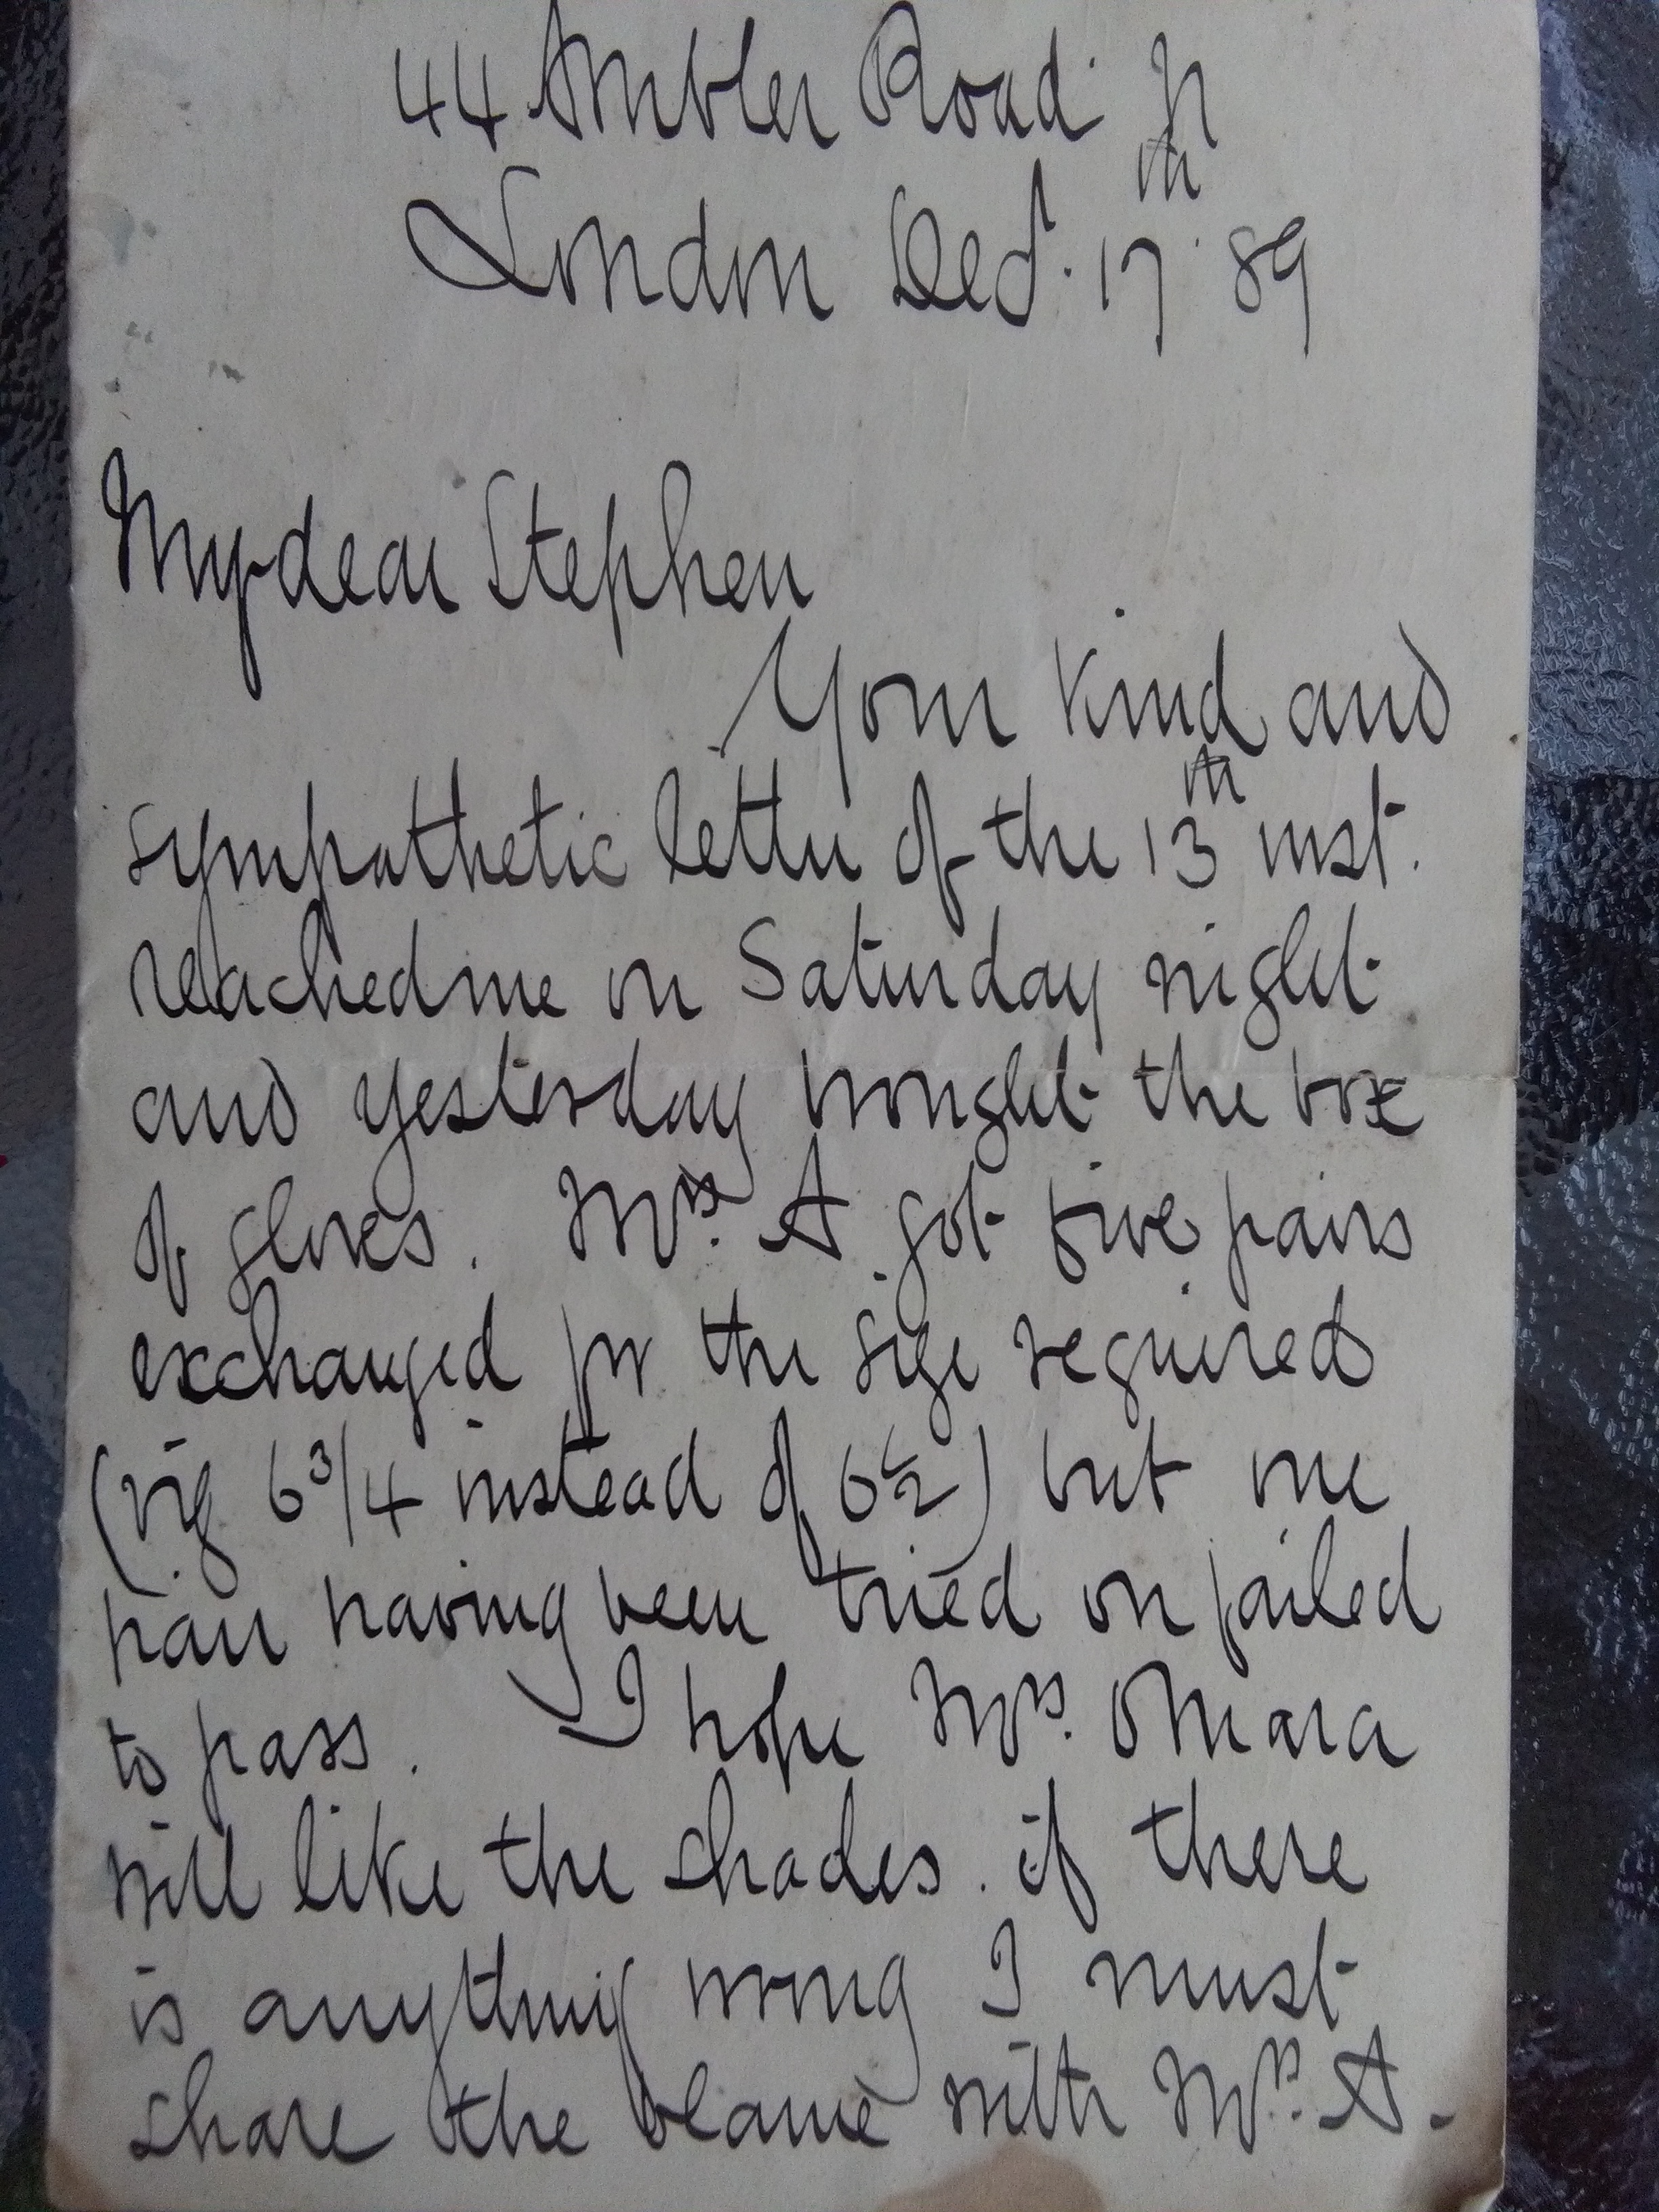 44 Ambler Road N
London Decr. 17th 89
My dear Stephen
Your kind and
sympathetic letter of the 13th inst.
reached me on Saturday night
and yesterday brought the box
of gloves. Mrs. A got five pairs
exchanged for the size required
(viz 6 3/4 instead of 6 1/2) but one
pair having been tried on failed
to pass. I hope Mrs. OMara
will like the shades. if there
is anything wrong I must
share the blame with Mrs. A.